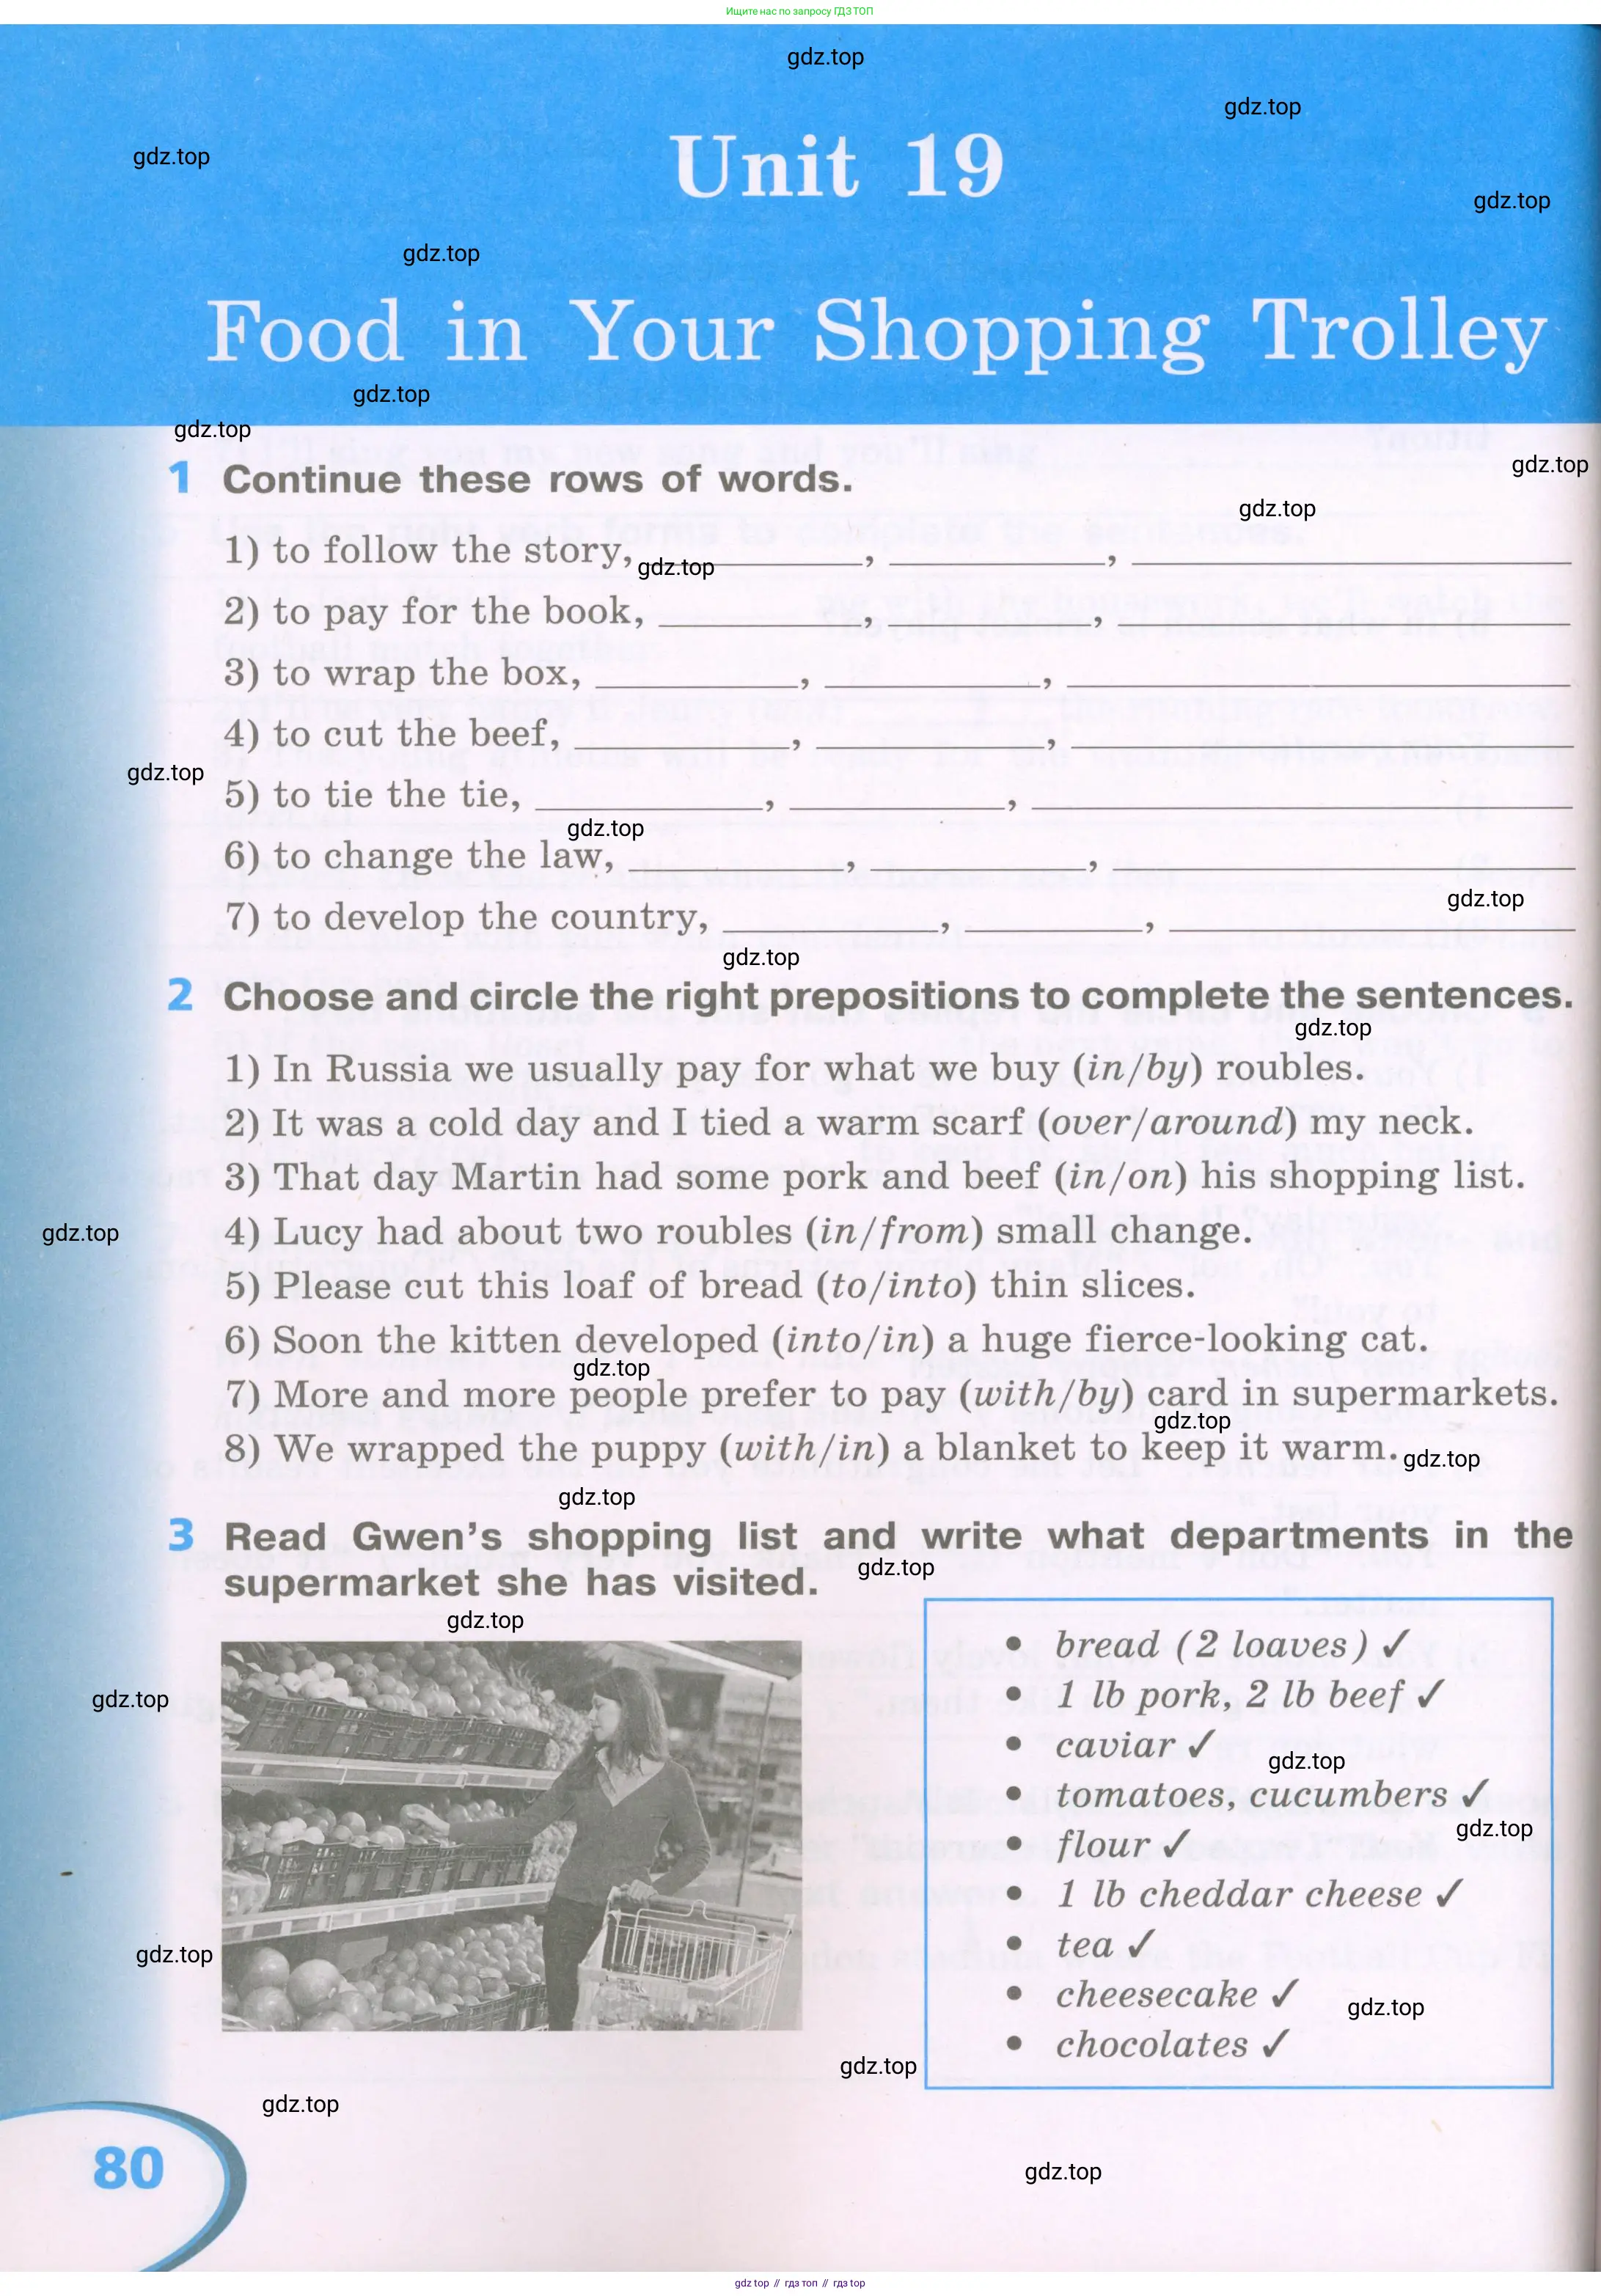 Ищите нас по запросу ГДЗ ТОП
gdz.top
gdz.top
gdz.top
Unit 19
gdz.top
gdz.top
Food in Your Shopping Trolley
gdz.top
gdz.top
gdz.top
1 Continue these rows of words.
gdz.top
1) to follow the story, ____, ____, ____
gdz.top
2) to pay for the book, ____, ____, ____
3) to wrap the box, ____, ____, ____
4) to cut the beef, ____, ____, ____
gdz.top
5) to tie the tie, ____, ____, ____
gdz.top
6) to change the law, ____, ____, ____
gdz.top
7) to develop the country, ____, ____, ____
gdz.top
2 Choose and circle the right prepositions to complete the sentences.
gdz.top
1) In Russia we usually pay for what we buy (in/by) roubles.
2) It was a cold day and I tied a warm scarf (over/around) my neck.
3) That day Martin had some pork and beef (in/on) his shopping list.
gdz.top
4) Lucy had about two roubles (in/from) small change.
5) Please cut this loaf of bread (to/into) thin slices.
6) Soon the kitten developed (into/in) a huge fierce-looking cat.
gdz.top
7) More and more people prefer to pay (with/by) card in supermarkets.
gdz.top
8) We wrapped the puppy (with/in) a blanket to keep it warm.
gdz.top
gdz.top
3 Read Gwen's shopping list and write what departments in the
supermarket she has visited.
gdz.top
gdz.top
• bread (2 loaves) ✓
• 1 lb pork, 2 lb beef ✓
gdz.top
• caviar ✓
gdz.top
• tomatoes, cucumbers ✓
gdz.top
• flour ✓
• 1 lb cheddar cheese ✓
• tea ✓
gdz.top
• cheesecake ✓
gdz.top
• chocolates ✓
gdz.top
gdz.top
80
gdz.top
gdz top // гдз топ // гдз top